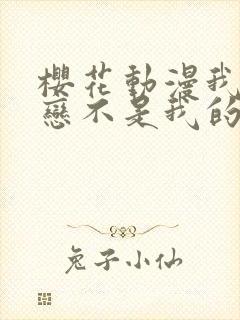 櫻花動漫我
戀不是我的
兔子小仙